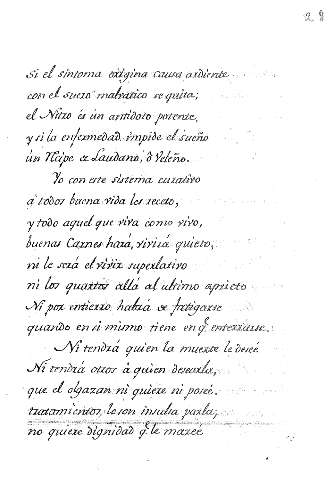 28
Si el sintoma exigina causa ardiente
con el suero malvatico se quita;
el Nitro és un antidoto potente,
y si la enfermedad impide el sueño
ún Rcipe de Laudano, ò Veleño.
Yo con este sistema curativo
à todos buena vida les receto,
y todo aquel que viva como vivo,
buenas Carnes hará, vivirá quieto,
ni le será el vivir superlativo
ni los quartos allá al ultimo aprieto
Ni por entierro habrá de fatigarse
quando en si mismo tiene en q.e enterrarse.
Ni tendrá quien la muerte le deseé
Ni tendrá otros à quien desearla,
que el olgazan ni quiere ni posée.
tratamientos, le son insulsa parla;
no quiere dignidad q.e le mareé